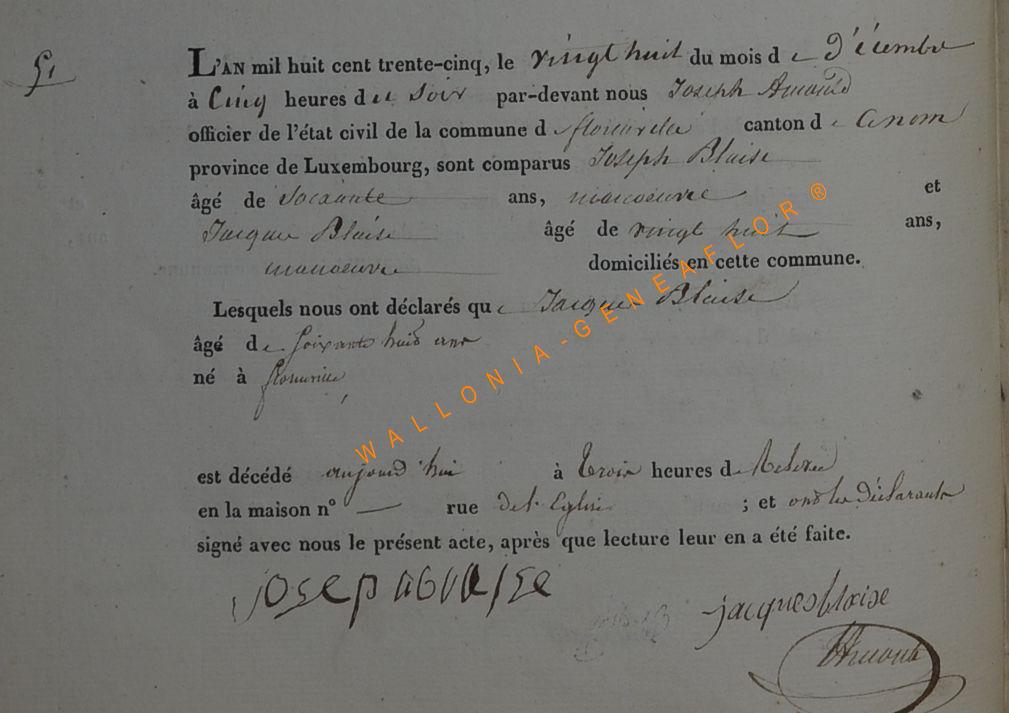 51
L'AN mil huit cent trente-cinq, le vingt huit du mois de Décembre
à Cinq heures du Soir par-devant nous Joseph
officier de l'état civil de la commune de florenville canton de
province de Luxembourg, sont comparus Joseph Blaise
âgé de Soixante ans, manoeuvre et
Jacque Blaise âgé de vingt huit ans,
manoeuvre domiciliés en cette commune.
Lesquels nous ont déclarés que Jacque Blaise
âgé de soixante huit ans
né à florenville
est décédé aujourd'hui à trois heures de Relevée
en la maison n° — rue de l'Eglise ; et ont les déclarants
signé avec nous le présent acte, après que lecture leur en a été faite.
josep blaise
jacques blaise
WALLONIA-GENEAFLOR®